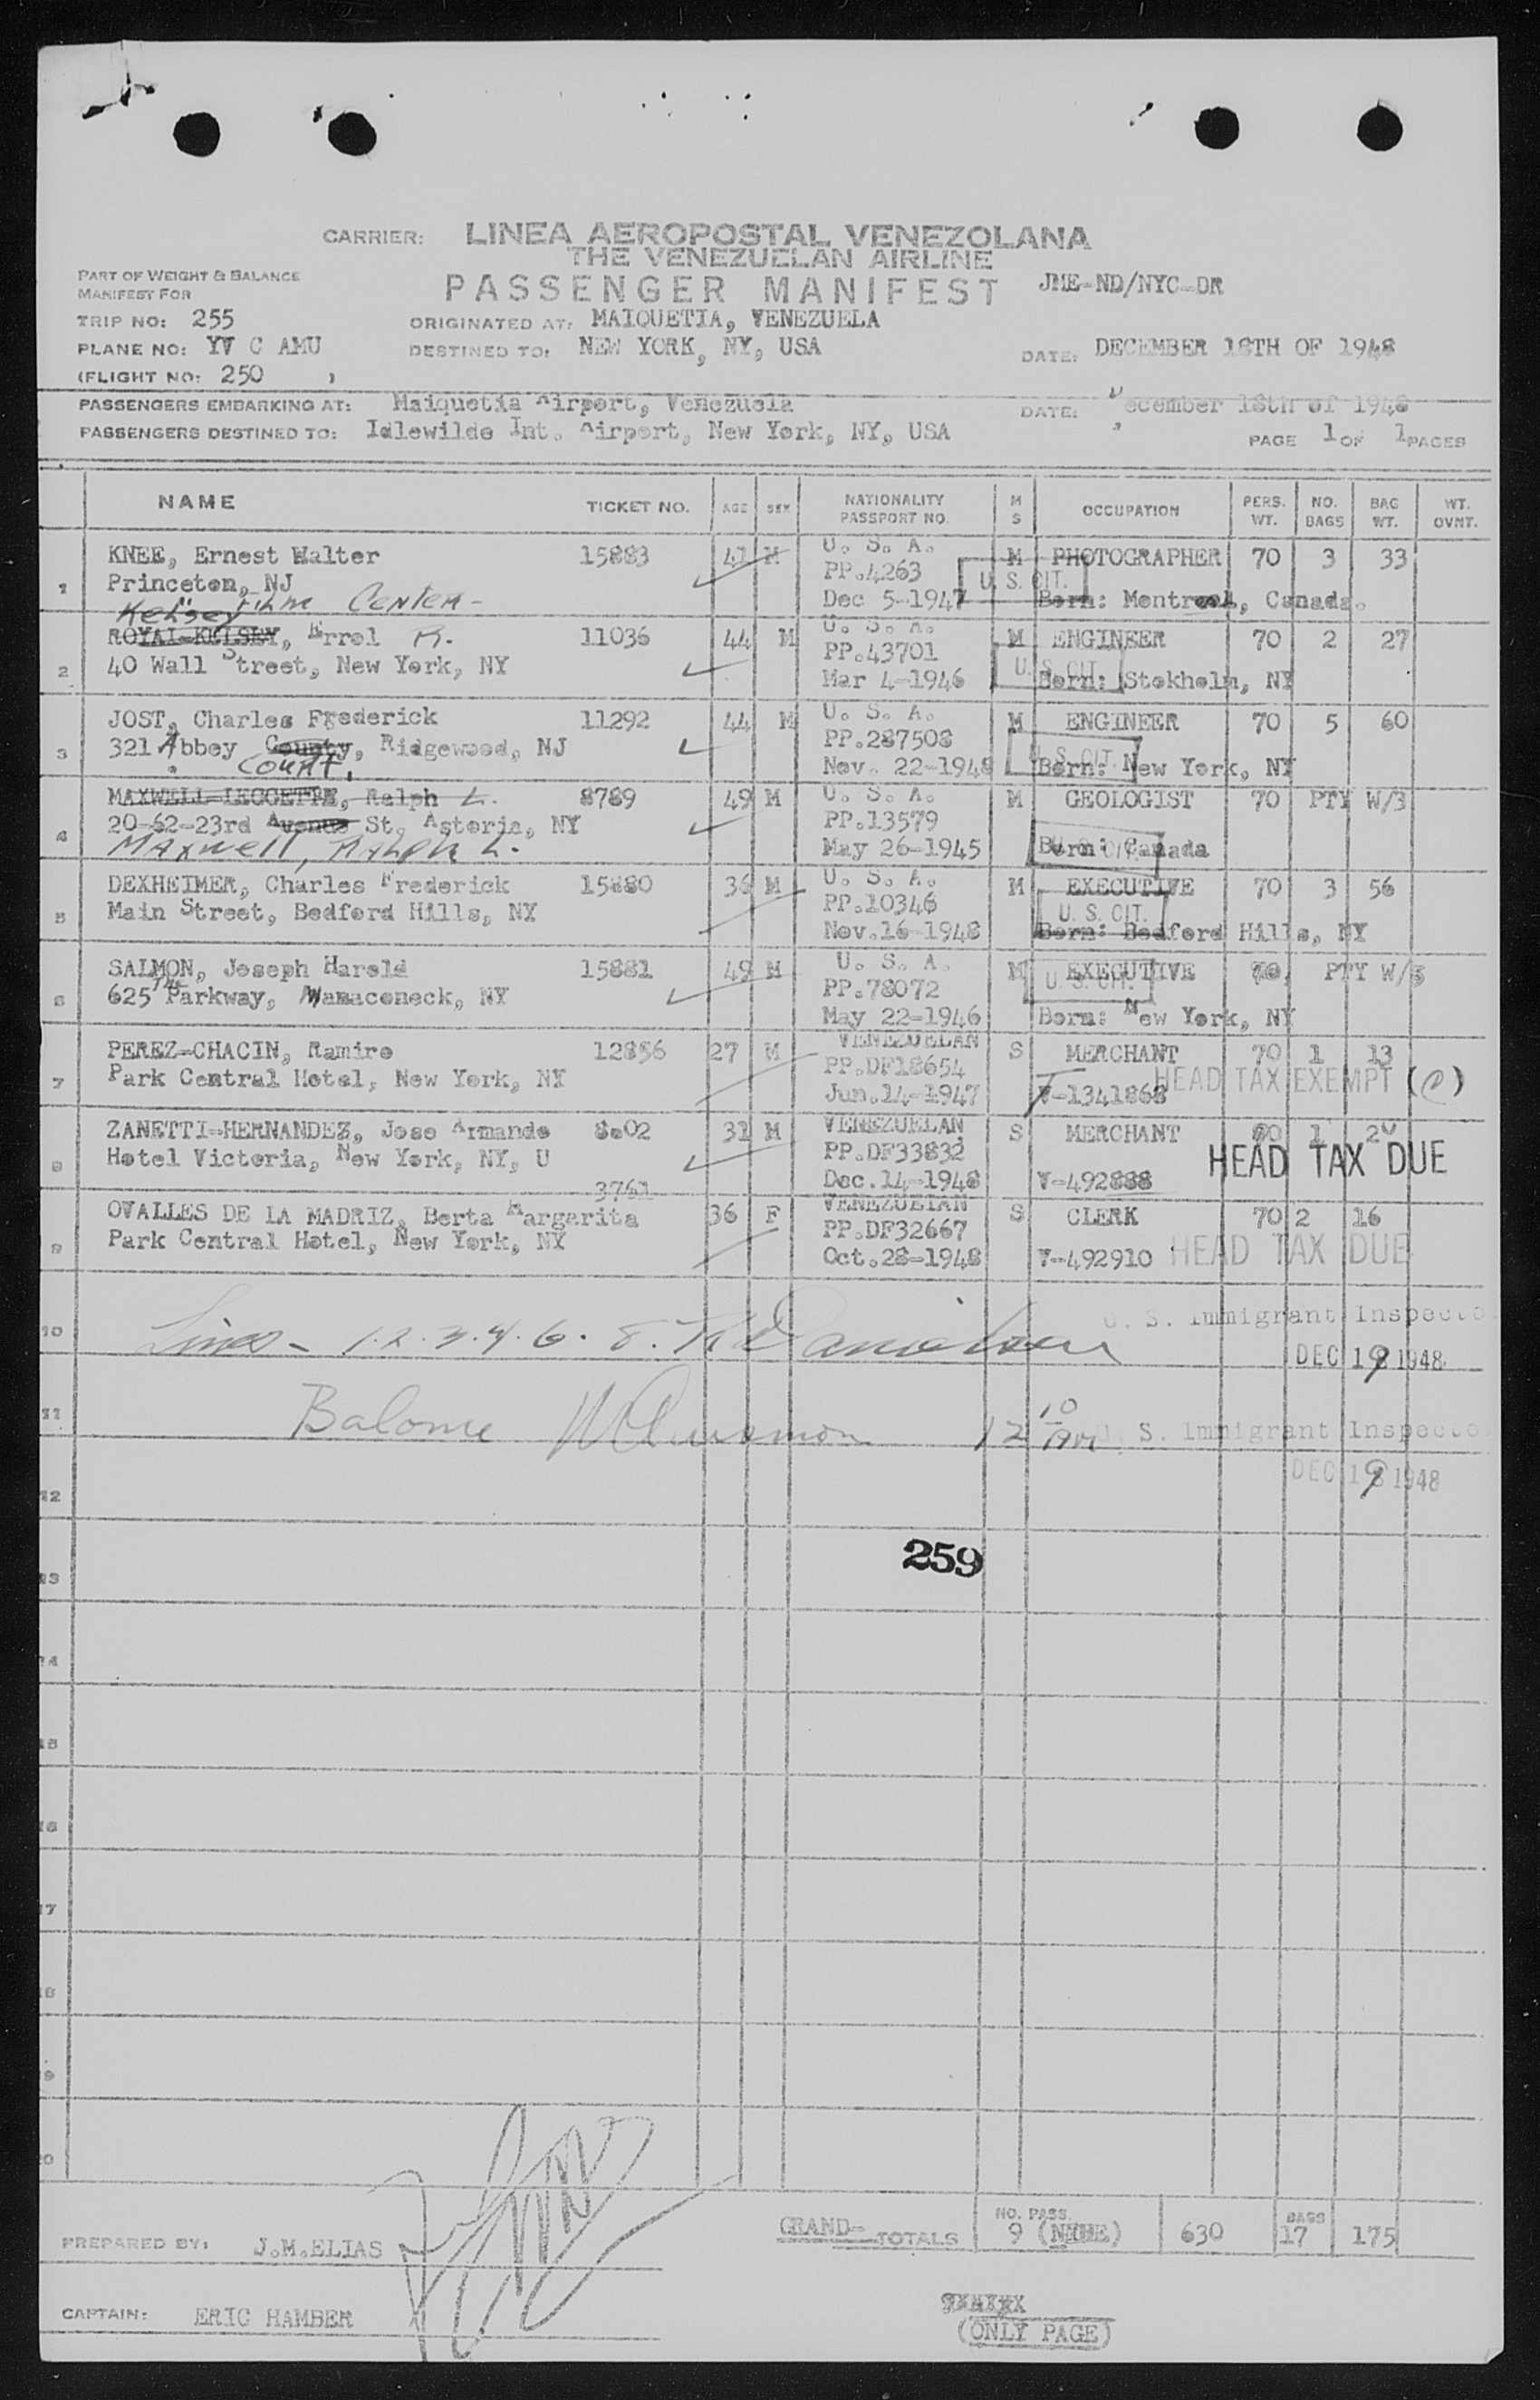 CARRIER: LINEA AEROPOSTAL VENEZOLANA
THE VENEZUELAN AIRLINE
PART OF WEIGHT & BALANCE
MANIFEST FOR
PASSENGER MANIFEST JME-ND/NYC-DR
TRIP NO: 255 ORIGINATED AT: MAIQUETIA, VENEZUELA
PLANE NO: YV C AMU DESTINED TO: NEW YORK, NY, USA DATE: DECEMBER 18TH OF 1948
(FLIGHT NO: 250 )
PASSENGERS EMBARKING AT: Maiquetia Airport, Venezuela DATE: December 18th of 1948
PASSENGERS DESTINED TO: Idlewilde Int. Airport, New York, NY, USA PAGE 1 OF 1 PAGES
NAME TICKET NO. AGE SEX NATIONALITY PASSPORT NO. M S OCCUPATION PERS. WT. NO. BAGS BAG WT. WT. OVNT.
1 KNEE, Ernest Walter 15883 41 M U. S. A. M PHOTOGRAPHER 70 3 33
Princeton, NJ PP.4263 U. S. CIT.
Film Center- Dec 5-1947 Born: Montreal, Canada.
Kelsey
2 ROYAL-KELSEY, Errol R. 11036 44 M U. S. A. M ENGINEER 70 2 27
40 Wall Street, New York, NY PP.43701 U. S. CIT.
Mar 4-1946 Born: Stokholm, NY
3 JOST, Charles Frederick 11292 44 M U. S. A. M ENGINEER 70 5 60
321 Abbey County, Ridgewood, NJ PP.287508 U. S. CIT.
Court. Nov. 22-1948 Born: New York, NY
4 MAXWELL-LEGGETTE, Ralph L. 8789 49 M U. S. A. M GEOLOGIST 70 PTY W/3
20-62-23rd Avenue St, Astoria, NY PP.13579
Maxwell, Ralph L. May 26-1945 Born: Canada
5 DEXHEIMER, Charles Frederick 15880 36 M U. S. A. M EXECUTIVE 70 3 56
Main Street, Bedford Hills, NY PP.10346 U. S. CIT.
Nov.16-1948 Born: Bedford Hills, NY
6 SALMON, Joseph Harold 15881 49 M U. S. A. M EXECUTIVE 70 PTY W/5
625 The Parkway, Mamaconeck, NY PP.78072 U. S. CIT.
May 22-1946 Born: New York, NY
7 PEREZ-CHACIN, Ramiro 12856 27 M VENEZUELAN S MERCHANT 70 1 13
Park Central Hotel, New York, NY PP.DF18654 HEAD TAX EXEMPT (c)
Jun.14-1947 V-1341868
8 ZANETTI-HERNANDEZ, Jose Armando 8002 31 M VENEZUELAN S MERCHANT 1
Hotel Victoria, New York, NY, U PP.DF33832 HEAD TAX DUE
Dec.14-1948 V-492888
3761
9 OVALLES DE LA MADRIZ, Berta Margarita 36 F VENEZUELAN S CLERK 70 2 16
Park Central Hotel, New York, NY PP.DF32667 HEAD TAX DUE
Oct.28-1948 V-492910
U. S. Immigrant Inspecto
10 Lines - 1.2.3.4.6. 8.
DEC 19 1948
11 Balance 12 10 AM U. S. Immigrant Inspecto
DEC 19 1948
12
259
13
14
15
16
17
18
19
20
PREPARED BY: J.M.ELIAS GRAND-TOTALS NO. PASS. 9 (NINE) 630 BAGS 17 175
CAPTAIN: ERIC HAMBER
(ONLY PAGE)